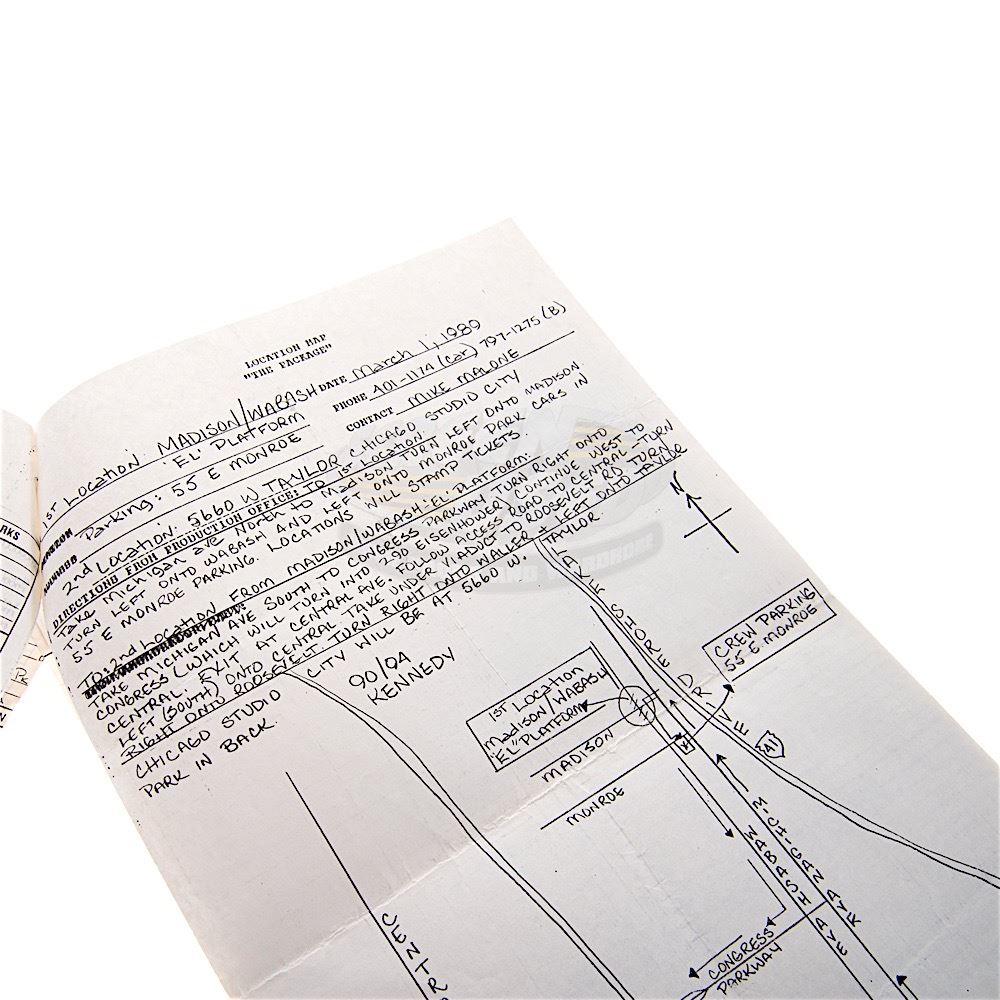 LOCATION MAP
"THE PACKAGE"
1ST LOCATION: MADISON/WABASH DATE March 1, 1989
'EL' PLATFORM PHONE 401-1174 (car) 797-1275 (B)
Parking: 55 E MONROE CONTACT MIKE MALONE
2nd Location: 5660 W TAYLOR CHICAGO STUDIO CITY
DIRECTIONS FROM PRODUCTION OFFICE: TO 1ST LOCATION:
TAKE MICHIGAN AVE NORTH TO MADISON TURN LEFT ONTO MADISON
TURN LEFT ONTO WABASH AND LEFT ONTO MONROE PARK CARS IN
55 E MONROE PARKING LOCATIONS WILL STAMP TICKETS.
TO: 2nd LOCATION FROM MADISON/WABASH-EL PLATFORM:
TAKE MICHIGAN AVE SOUTH TO CONGRESS PARKWAY TURN RIGHT ONTO
CONGRESS (WHICH WILL TURN INTO 290 EISENHOWER) CONTINUE WEST TO
CENTRAL. EXIT AT CENTRAL AVE. FOLLOW ACCESS ROAD TO CENTRAL-TURN
LEFT (SOUTH) ONTO CENTRAL TAKE UNDER VIADUCT TO ROOSEVELT RD TURN
RIGHT ONTO ROOSEVELT. TURN RIGHT ONTO WALKER + LEFT ONTO TAYLOR
CHICAGO STUDIO CITY WILL BE AT 5660 W. TAYLOR.
PARK IN BACK.
N
90/94
KENNEDY
LAKE SHORE DRIVE
41
CREW PARKING
55 E MONROE
1ST Location
Madison/WABASH
"EL" PLATFORM
MADISON
MONROE
WABASH AVE
MICHIGAN AVE
CONGRESS
PARKWAY
CENTR
RKS